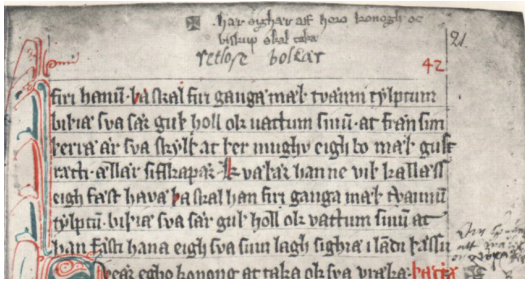 har eighær aff hero konogh oc
biskup skal taka
retlose bolkar
21.
42
firi hanū. þa skal firi ganga mæþ tvænni tylptum
biþiæ sva sær guþ holl ok vattum sinū. at frænsim
þerræ ær sva skylt at þer mughu eigh bo mæþ guss
ræth. ællær siffskapær. vakær hanne viþ kallæss
eigh fæst havæ þa skal han firi ganga mæþ tvænnū
tylptū. biþiæ sva sær guþ holl ok vattum sinū at
han fæsti hana eigh sva sum lagh sighiæ i lādi þæssu
Svear egho konong at taka ok sva vrækæ.